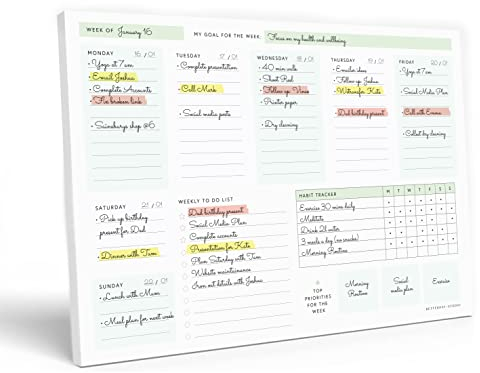 WEEK OF January 16
MY GOAL FOR THE WEEK: Focus on my health and wellbeing
MONDAY 16 / 01
• Yoga at 7am
• Email Joshua
• Complete Accounts
• Fix broken link
• Sainsburys shop @6
TUESDAY 17 / 01
• Complete presentation
• Call Mark
• Social media posts
WEDNESDAY 18 / 01
• 40 min walk
• Shoot Reel
• Follow up Vince
• Printer paper
• Dry cleaning
THURSDAY 19 / 01
• Emails
• Follow up Joshua
• Kate
• Dad birthday present
FRIDAY 20 / 01
• Yoga at 7am
• Social Media Plan
• Call with Emma
• Collect dry cleaning
SATURDAY 21 / 01
• Pick up birthday
present for Dad
• Dinner with Tom
SUNDAY 22 / 01
• Lunch with Mum
• Meal plan for next week
WEEKLY TO DO LIST
Dad birthday present
Social Media Plan
Complete accounts
Presentation for Kate
Plan Saturday with Tom
Website maintainance
Iron out details with Joshua
HABIT TRACKER M T W T F S S
Exercise 30 mins daily
Meditate
Drink 2L water
3 meals a day (no snacks)
Morning Routine
TOP
PRIORITIES
FOR THE
WEEK
Morning
Routine
Social
media plan
Exercise